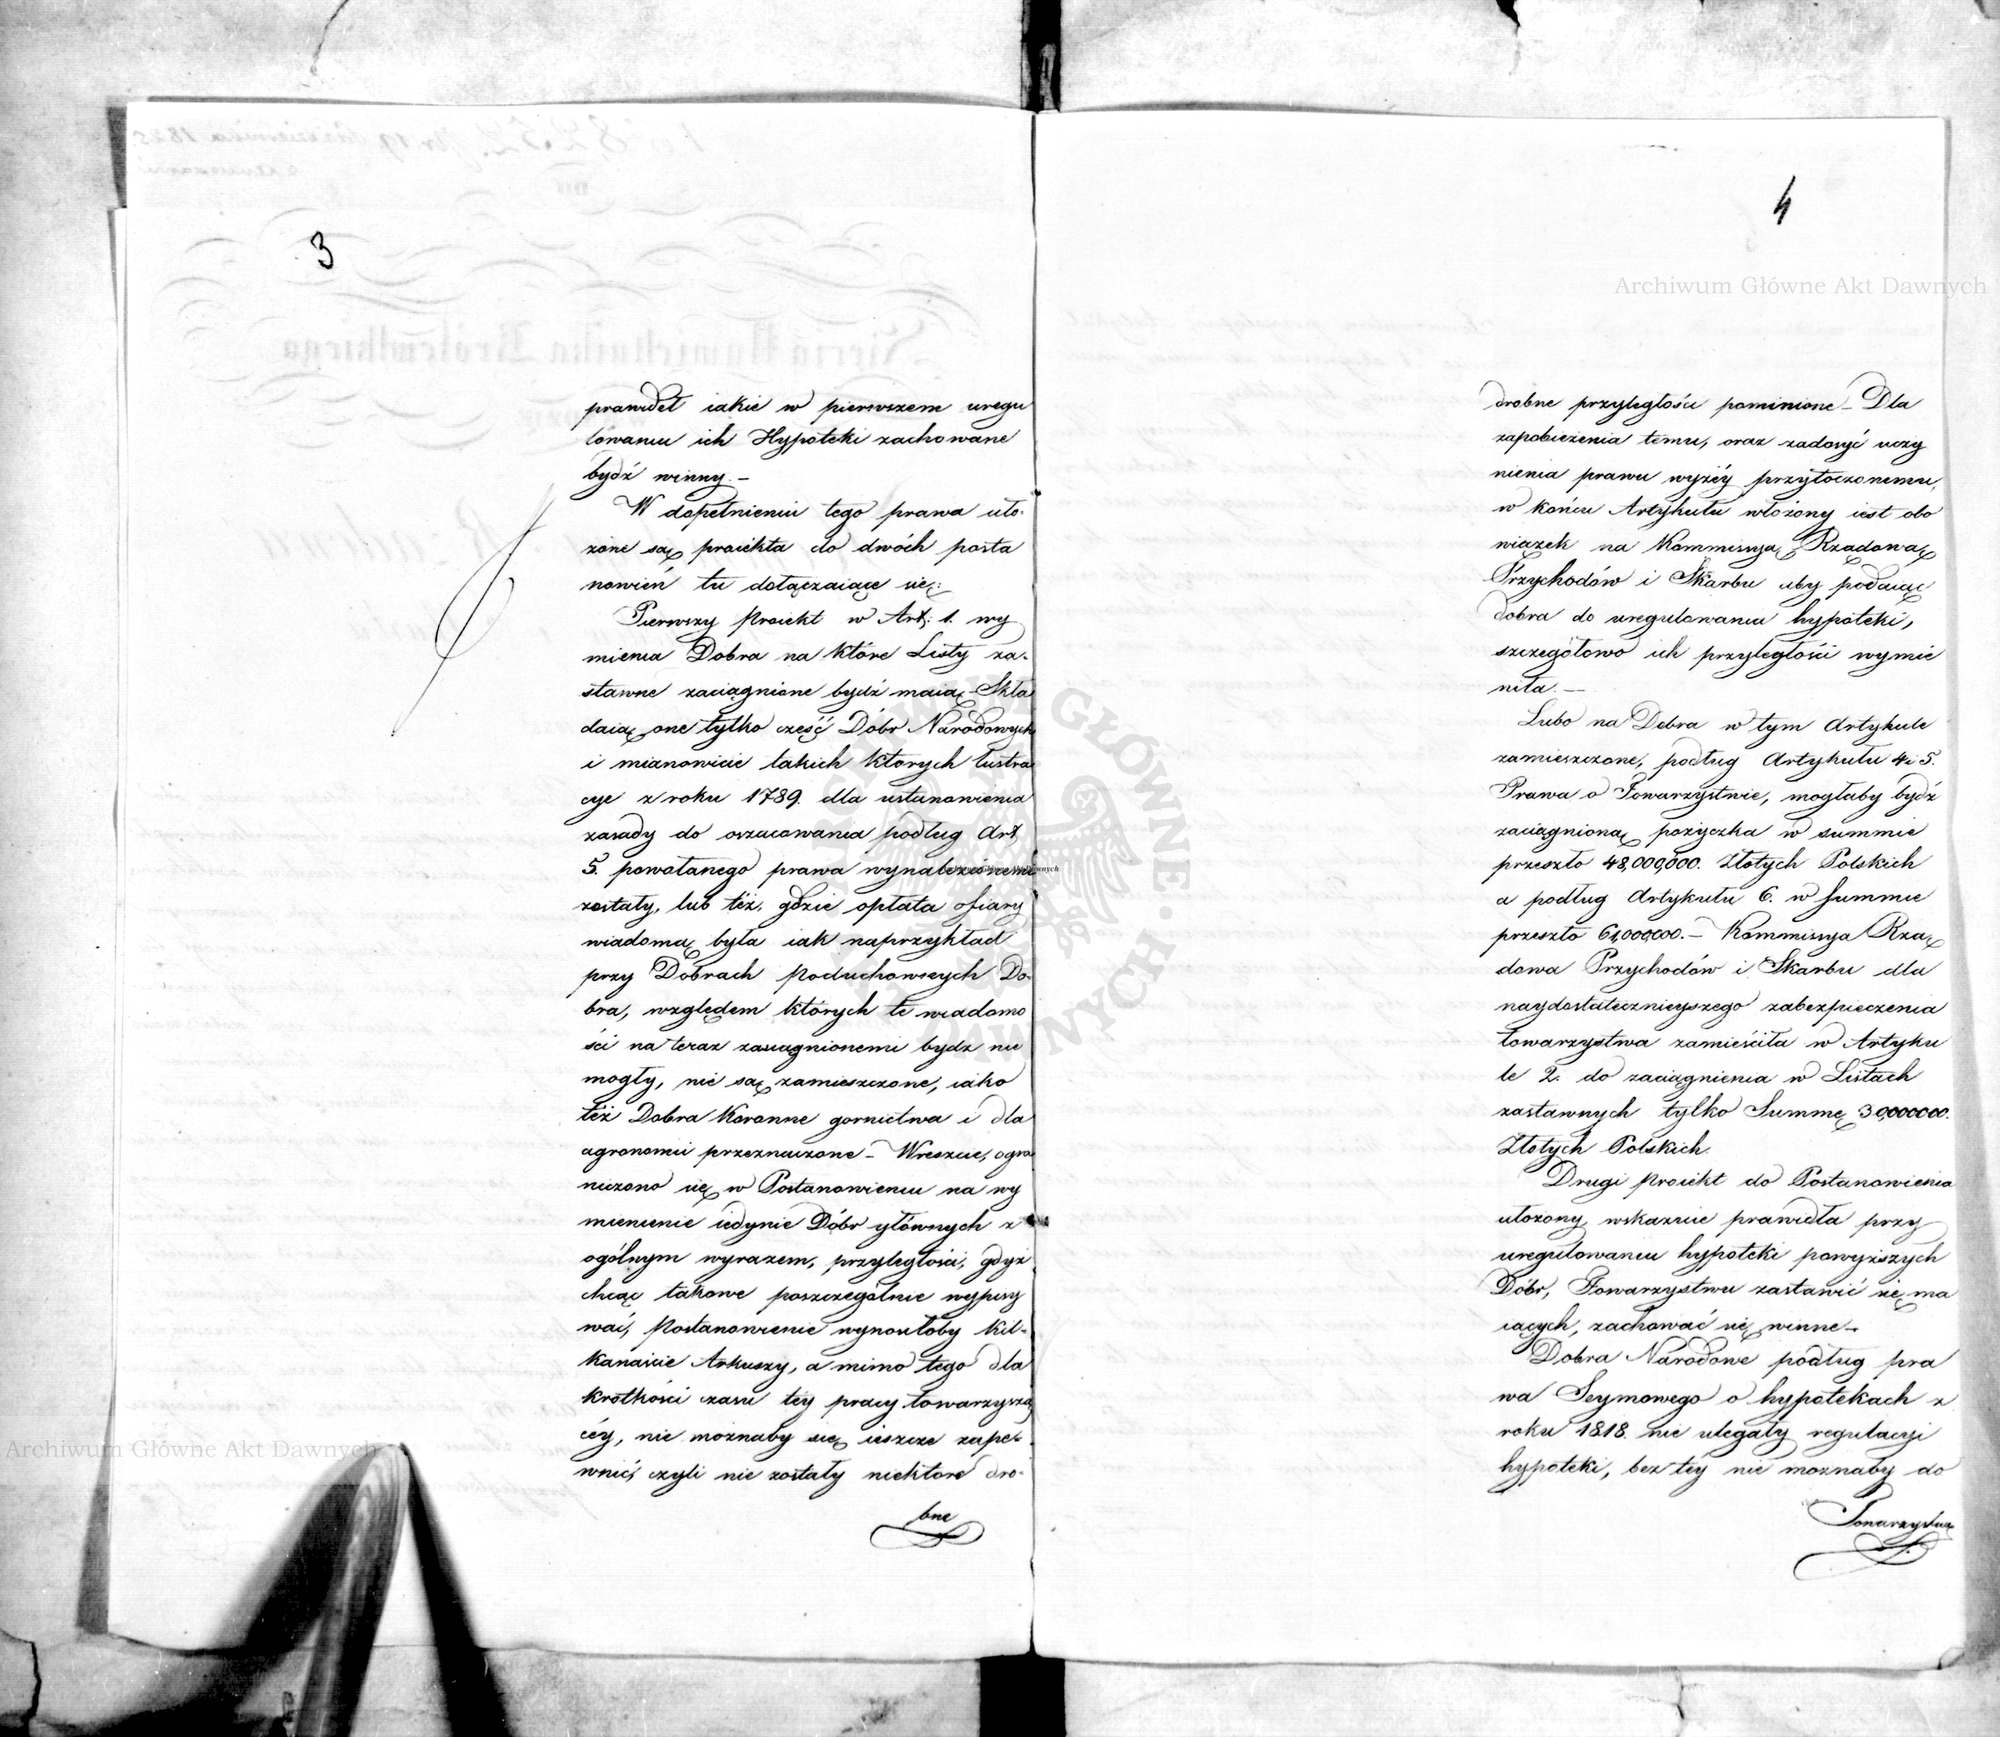 3
prawideł iakie w pierwszem uregu
lowaniu ich Hypoteki zachowane
bydź winny. –
W dopełnieniu tego prawa uło-
żone są proiekta do dwóch posta
nowień tu dołączaiące się:
Pierwszy Proiekt w Art: 1. wy
mienia Dobra na które Listy za-
stawne zaciągnione bydź maią – Skła
daią one tylko część Dóbr Narodowych
i mianowicie takich których lustra
cye z roku 1789. dla ustanowienia
zasady do oszacowania podług Art
5. powołanego prawa wynalezionemi
zostały, lub też, gdzie opłata ofiary
wiadomą była iak naprzykład
przy Dobrach Poduchownych Do-
bra, względem których te wiadomo
ści na teraz zasiągnionemi bydz nie
mogły, nie są zamieszczone, iako
też Dobra Koronne gornictwa i dla
agronomii przeznaczone – Wreszcie, ogra
niczono się w Postanowieniu na wy
mienienie iedynie Dóbr głównych z
ogólnym wyrazem, przyległości, gdyż
chcąc takowe poszczególnie wypisy
wać, Postanowienie wynosiłoby kil-
kanaście Arkuszy, a mimo tego dla
krótkości czasu tey pracy towarzyszą
céy, nie możnaby się ieszcze zape-
wnić, czyli nie zostały niektore dro-
bne
4
Archiwum Główne Akt Dawnych
drobne przyległości pominione – Dla
zapobieżenia temu, oraz zadosyć uczy
nienia prawu wyżéy przytoczonemu,
w końcu Artykułu włożony iest obo
wiązek na Kommissyą Rządową
Przychodów i Skarbu aby podaiąc
dobra do uregulowania hypoteki,
szczegółowo ich przyległości wymie
niła. –
Lubo na Dobra w tym Artykule
zamieszczone, podług Artykułu 4 i 5.
Prawa o Towarzystwie, mogłaby bydź
zaciągnioną pożyczka w summie
przeszło 48,000,000. Złotych Polskich
a podług Artykułu 6. w summie
przeszło 61,000,000. – Kommissya Rzą
dowa Przychodów i Skarbu dla
naydostatecznieyszego zabezpieczenia
towarzystwa zamieściła w Artyku
le 2. do zaciągnienia w Listach
zastawnych tylko Summę 30,000,000.
Złotych Polskich.
Drugi Proiekt do Postanowienia
ułożony, wskazuie prawidła przy
uregulowaniu hypoteki powyższych
Dóbr, Towarzystwu zastawić się ma
iących, zachować się winne –
Dobra Narodowe podług pra
wa Seymowego o hypotekach z
roku 1818. nie ulegały regulacyi
hypoteki, bez téy nie możnaby do
Towarzystwa
Archiwum Główne Akt Dawnych